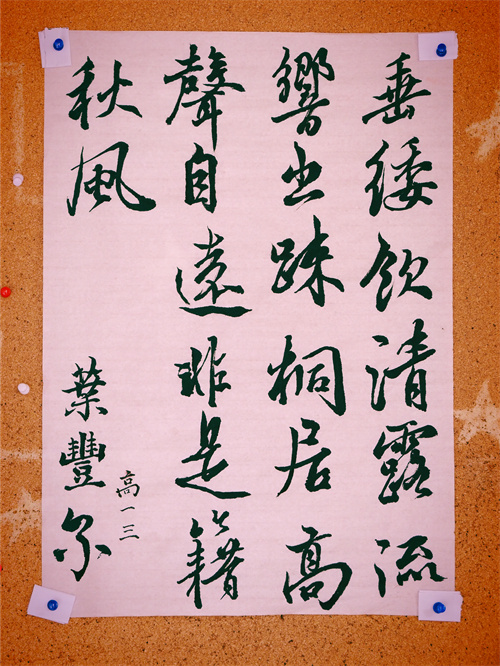 垂緌飲清露流
響出踈桐居高
聲自遠非是籍
秋風
高一三
葉豐尔